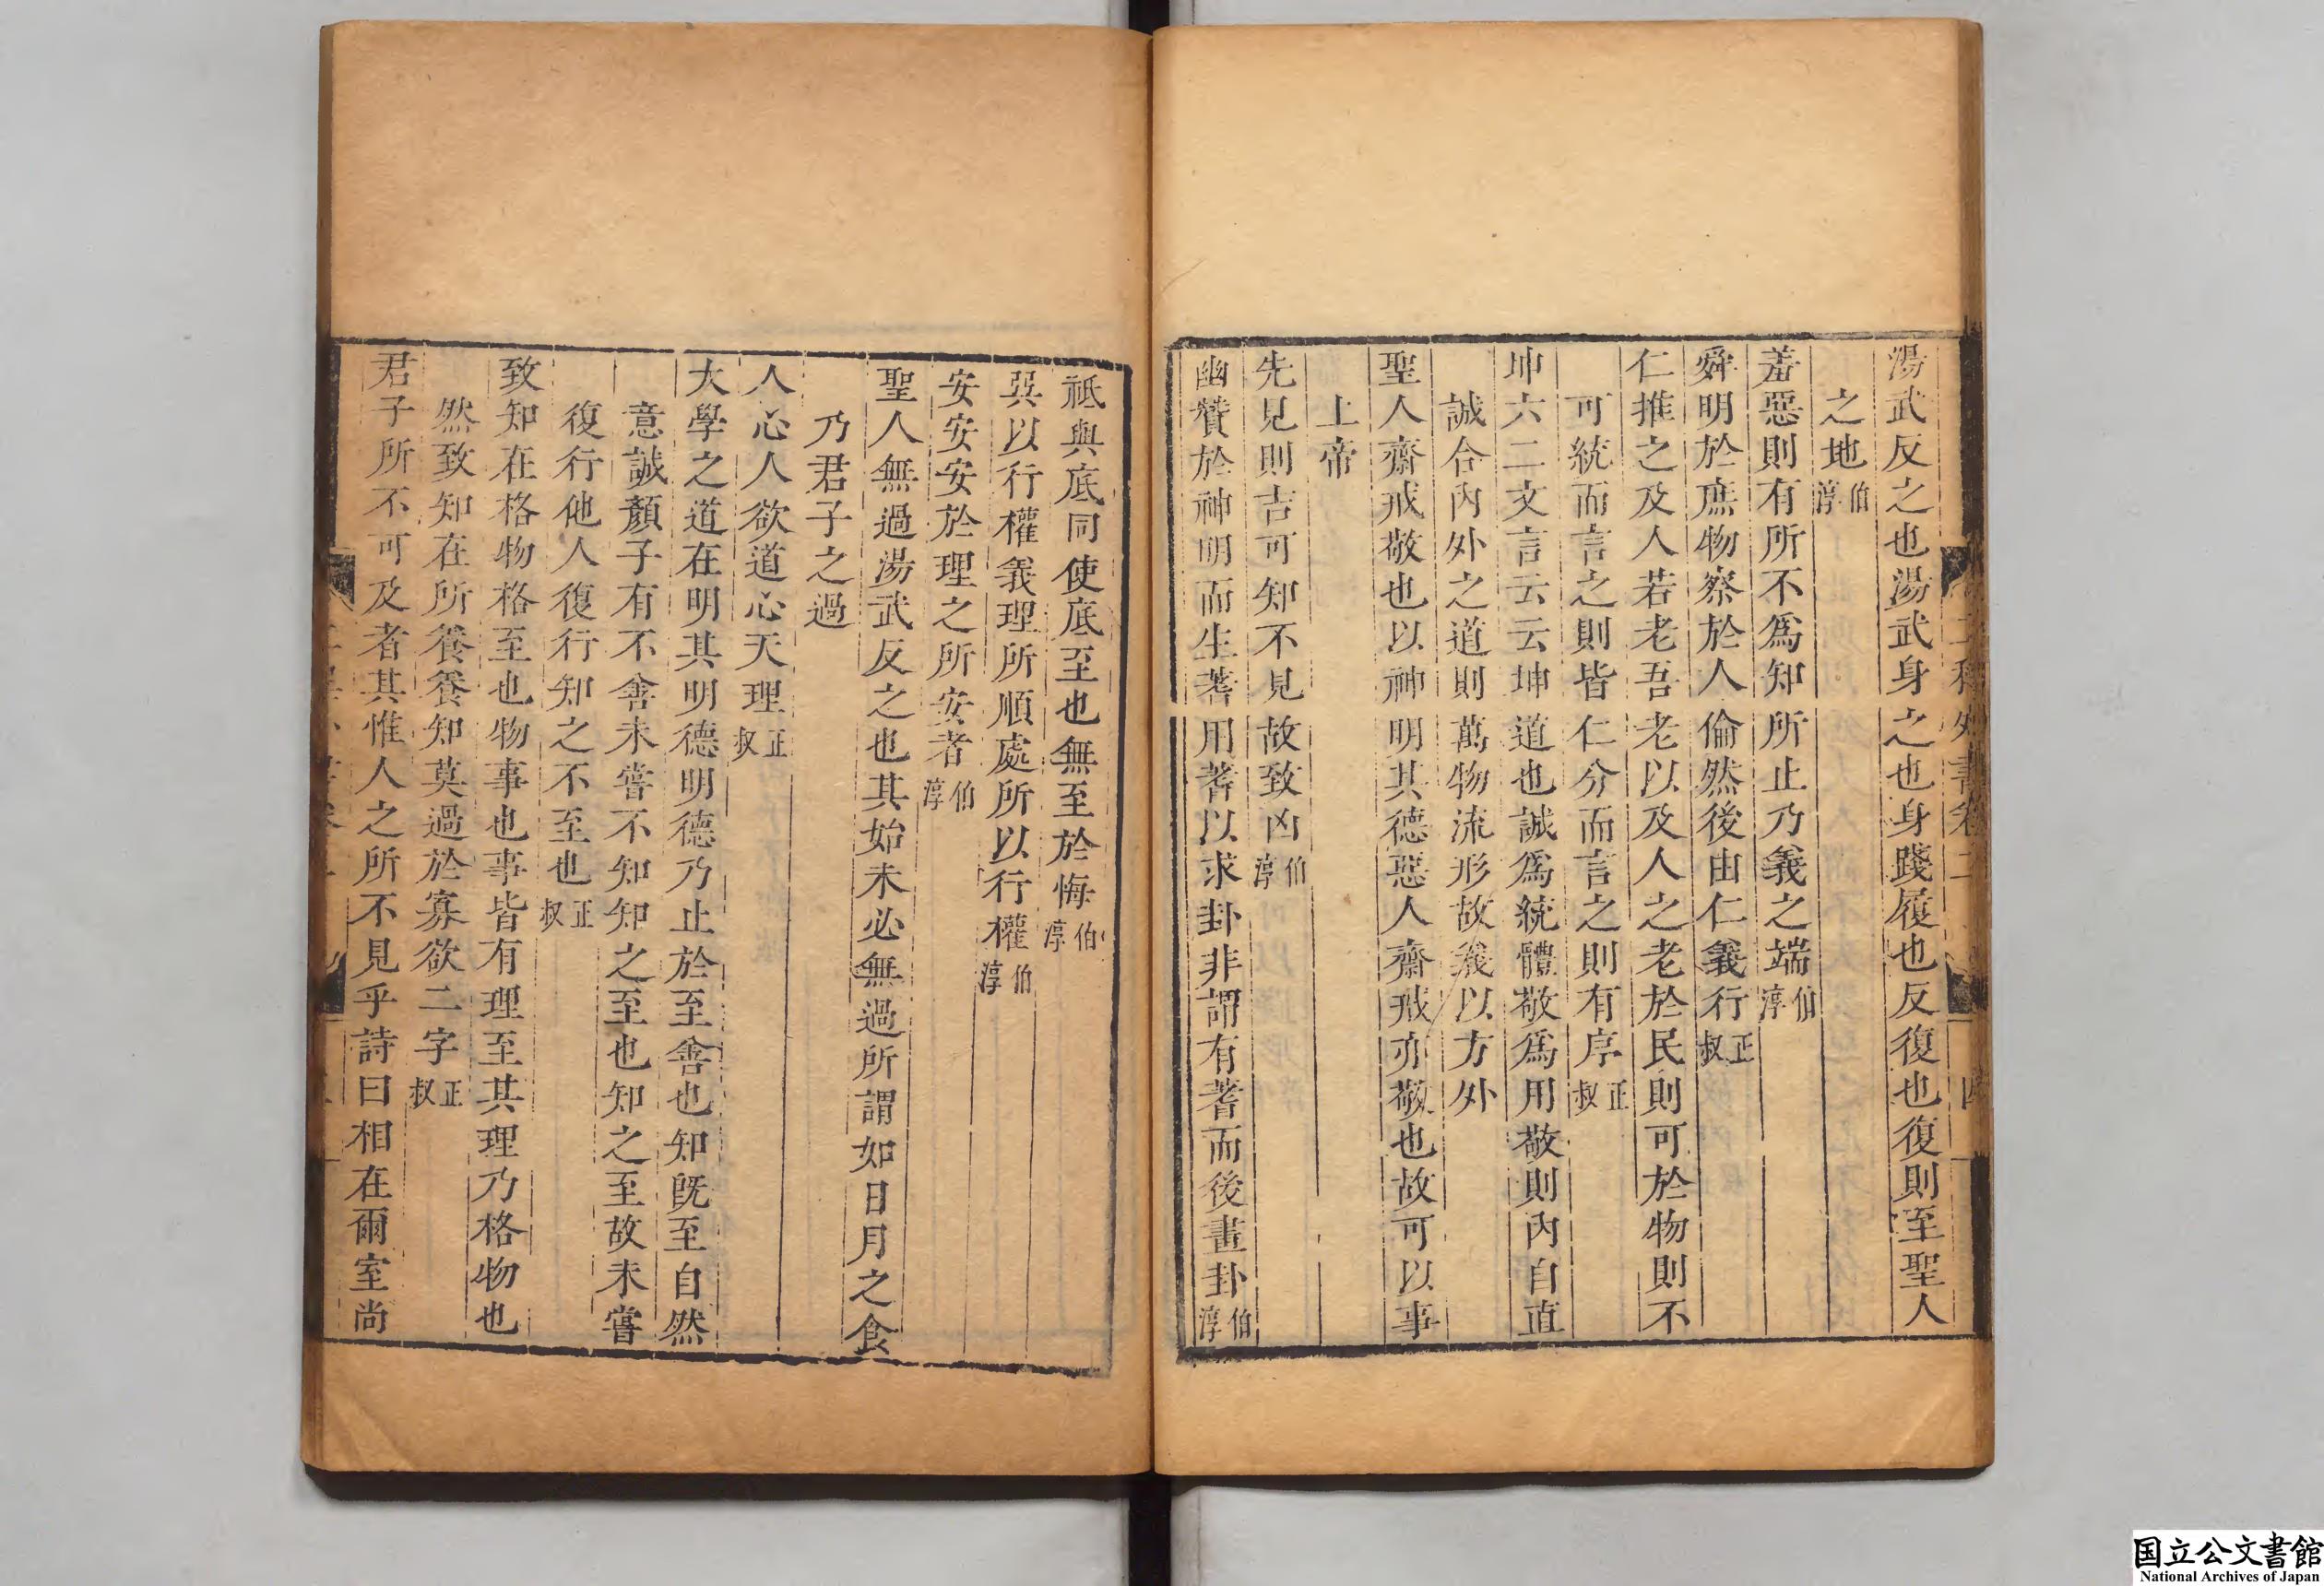 湯武反之也湯武身之也身踐履也反復也復則至聖人
之地伯淳
羞惡則有所不爲知所止乃義之端伯淳
舜明於庶物察於人倫然後由仁義行正叔
仁推之及人若老吾老以及人之老於民則可於物則不
可統而言之則皆仁分而言之則有序正叔
坤六二文言云云坤道也誠爲統體敬爲用敬則內自直
誠合內外之道則萬物流形故義以方外
聖人齋戒敬也以神明其德惡人齋戒亦敬也故可以事
上帝
先見則吉可知不見故致凶伯淳
幽贊於神明而生蓍用蓍以求卦非謂有蓍而後畫卦伯淳
祗與底同使底至也無至於悔伯淳
巽以行權義理所順處所以行權伯淳
安安安於理之所安者伯淳
聖人無過湯武反之也其始未必無過所謂如日月之食
乃君子之過
人心人欲道心天理正叔
大學之道在明其明德明德乃止於至善也知旣至自然
意誠顏子有不善未嘗不知知之至也知之至故未嘗
復行他人復行知之不至也正叔
致知在格物格至也物事也事皆有理至其理乃格物也
然致知在所養養知莫過於寡欲二字正叔
君子所不可及者其惟人之所不見乎詩曰相在爾室尚
国立公文書館
National Archives of Japan